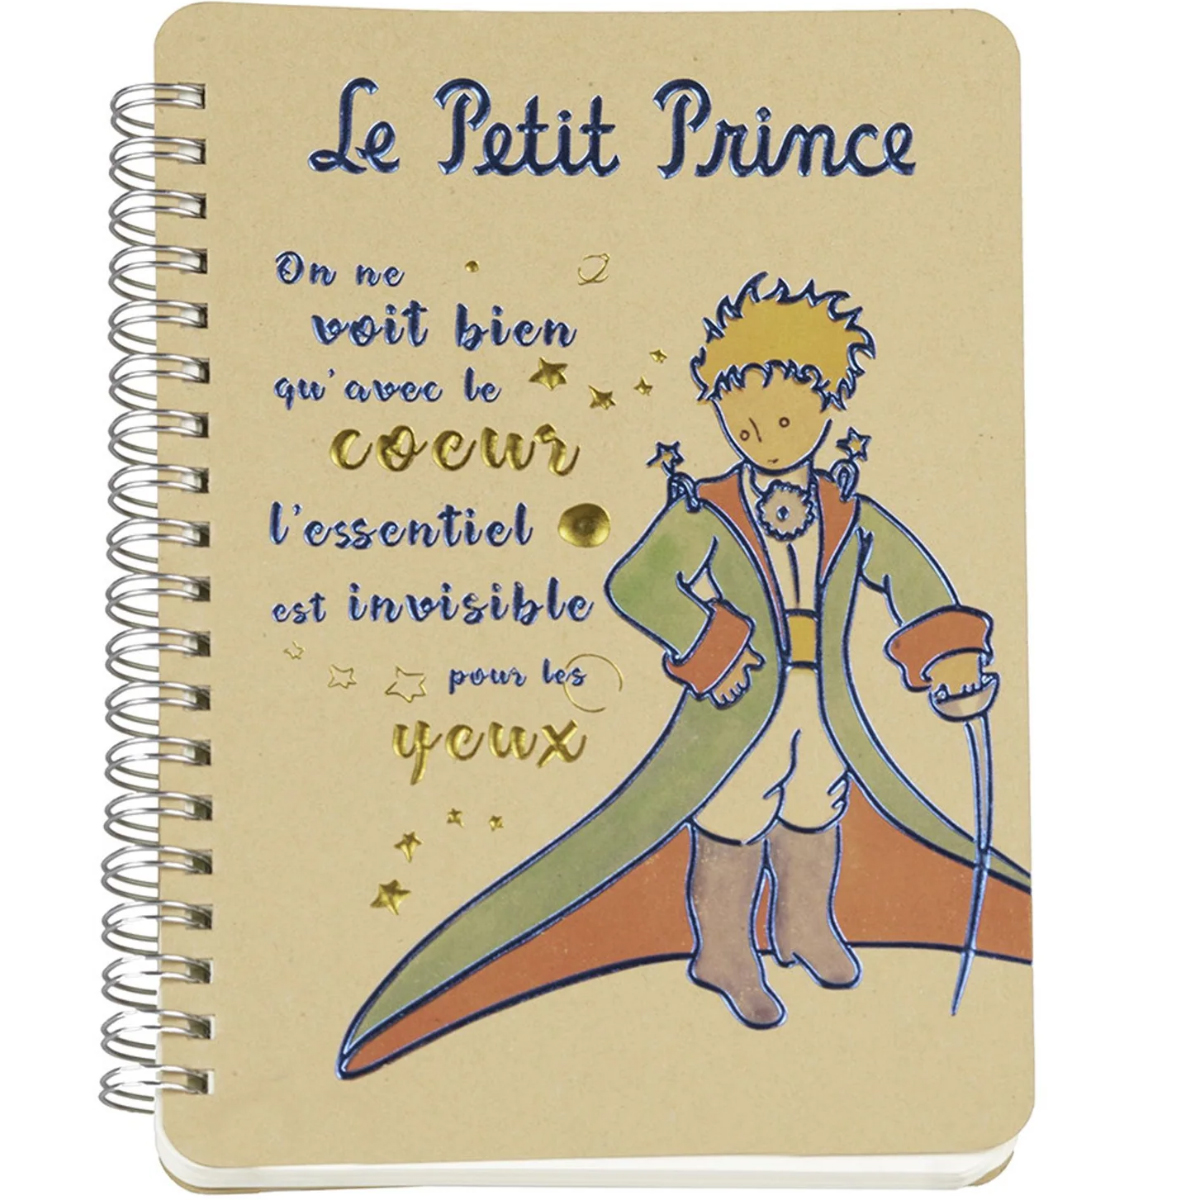 Le Petit Prince
On ne
voit bien
qu'avec le
coeur
l'essentiel
est invisible
pour les
yeux